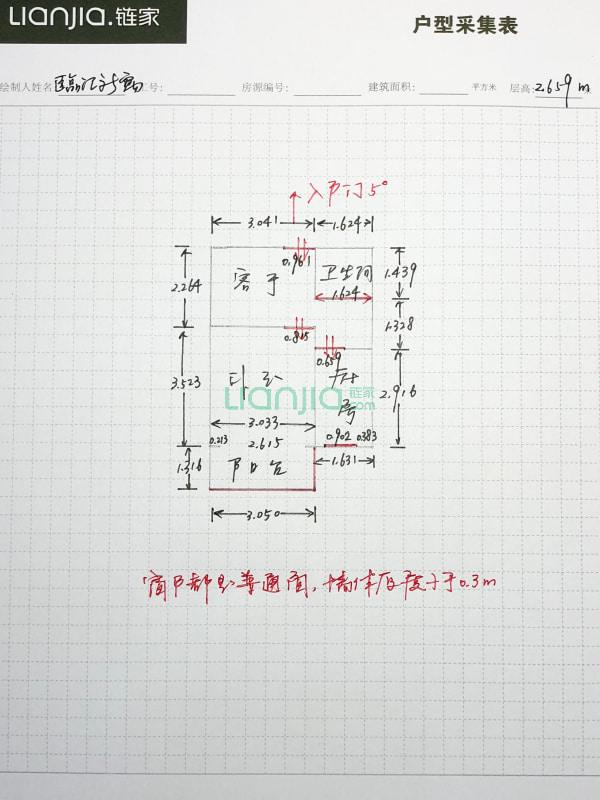 Lianjia.链家
户型采集表
绘制人姓名 工号: 房源编号: 建筑面积: 平方米 层高: 2.659 m
入户门 5°
3.041 1.624
0.961
客厅 卫生间
2.264 1.439
1.624
0.815 1.328
0.659
卧室 厨房
3.523 2.916
Lianjia 链家.com
3.033
0.213 2.615 0.902 0.383
1.316 阳台 1.631
3.050
窗户都是普通窗，墙体厚度小于0.3m